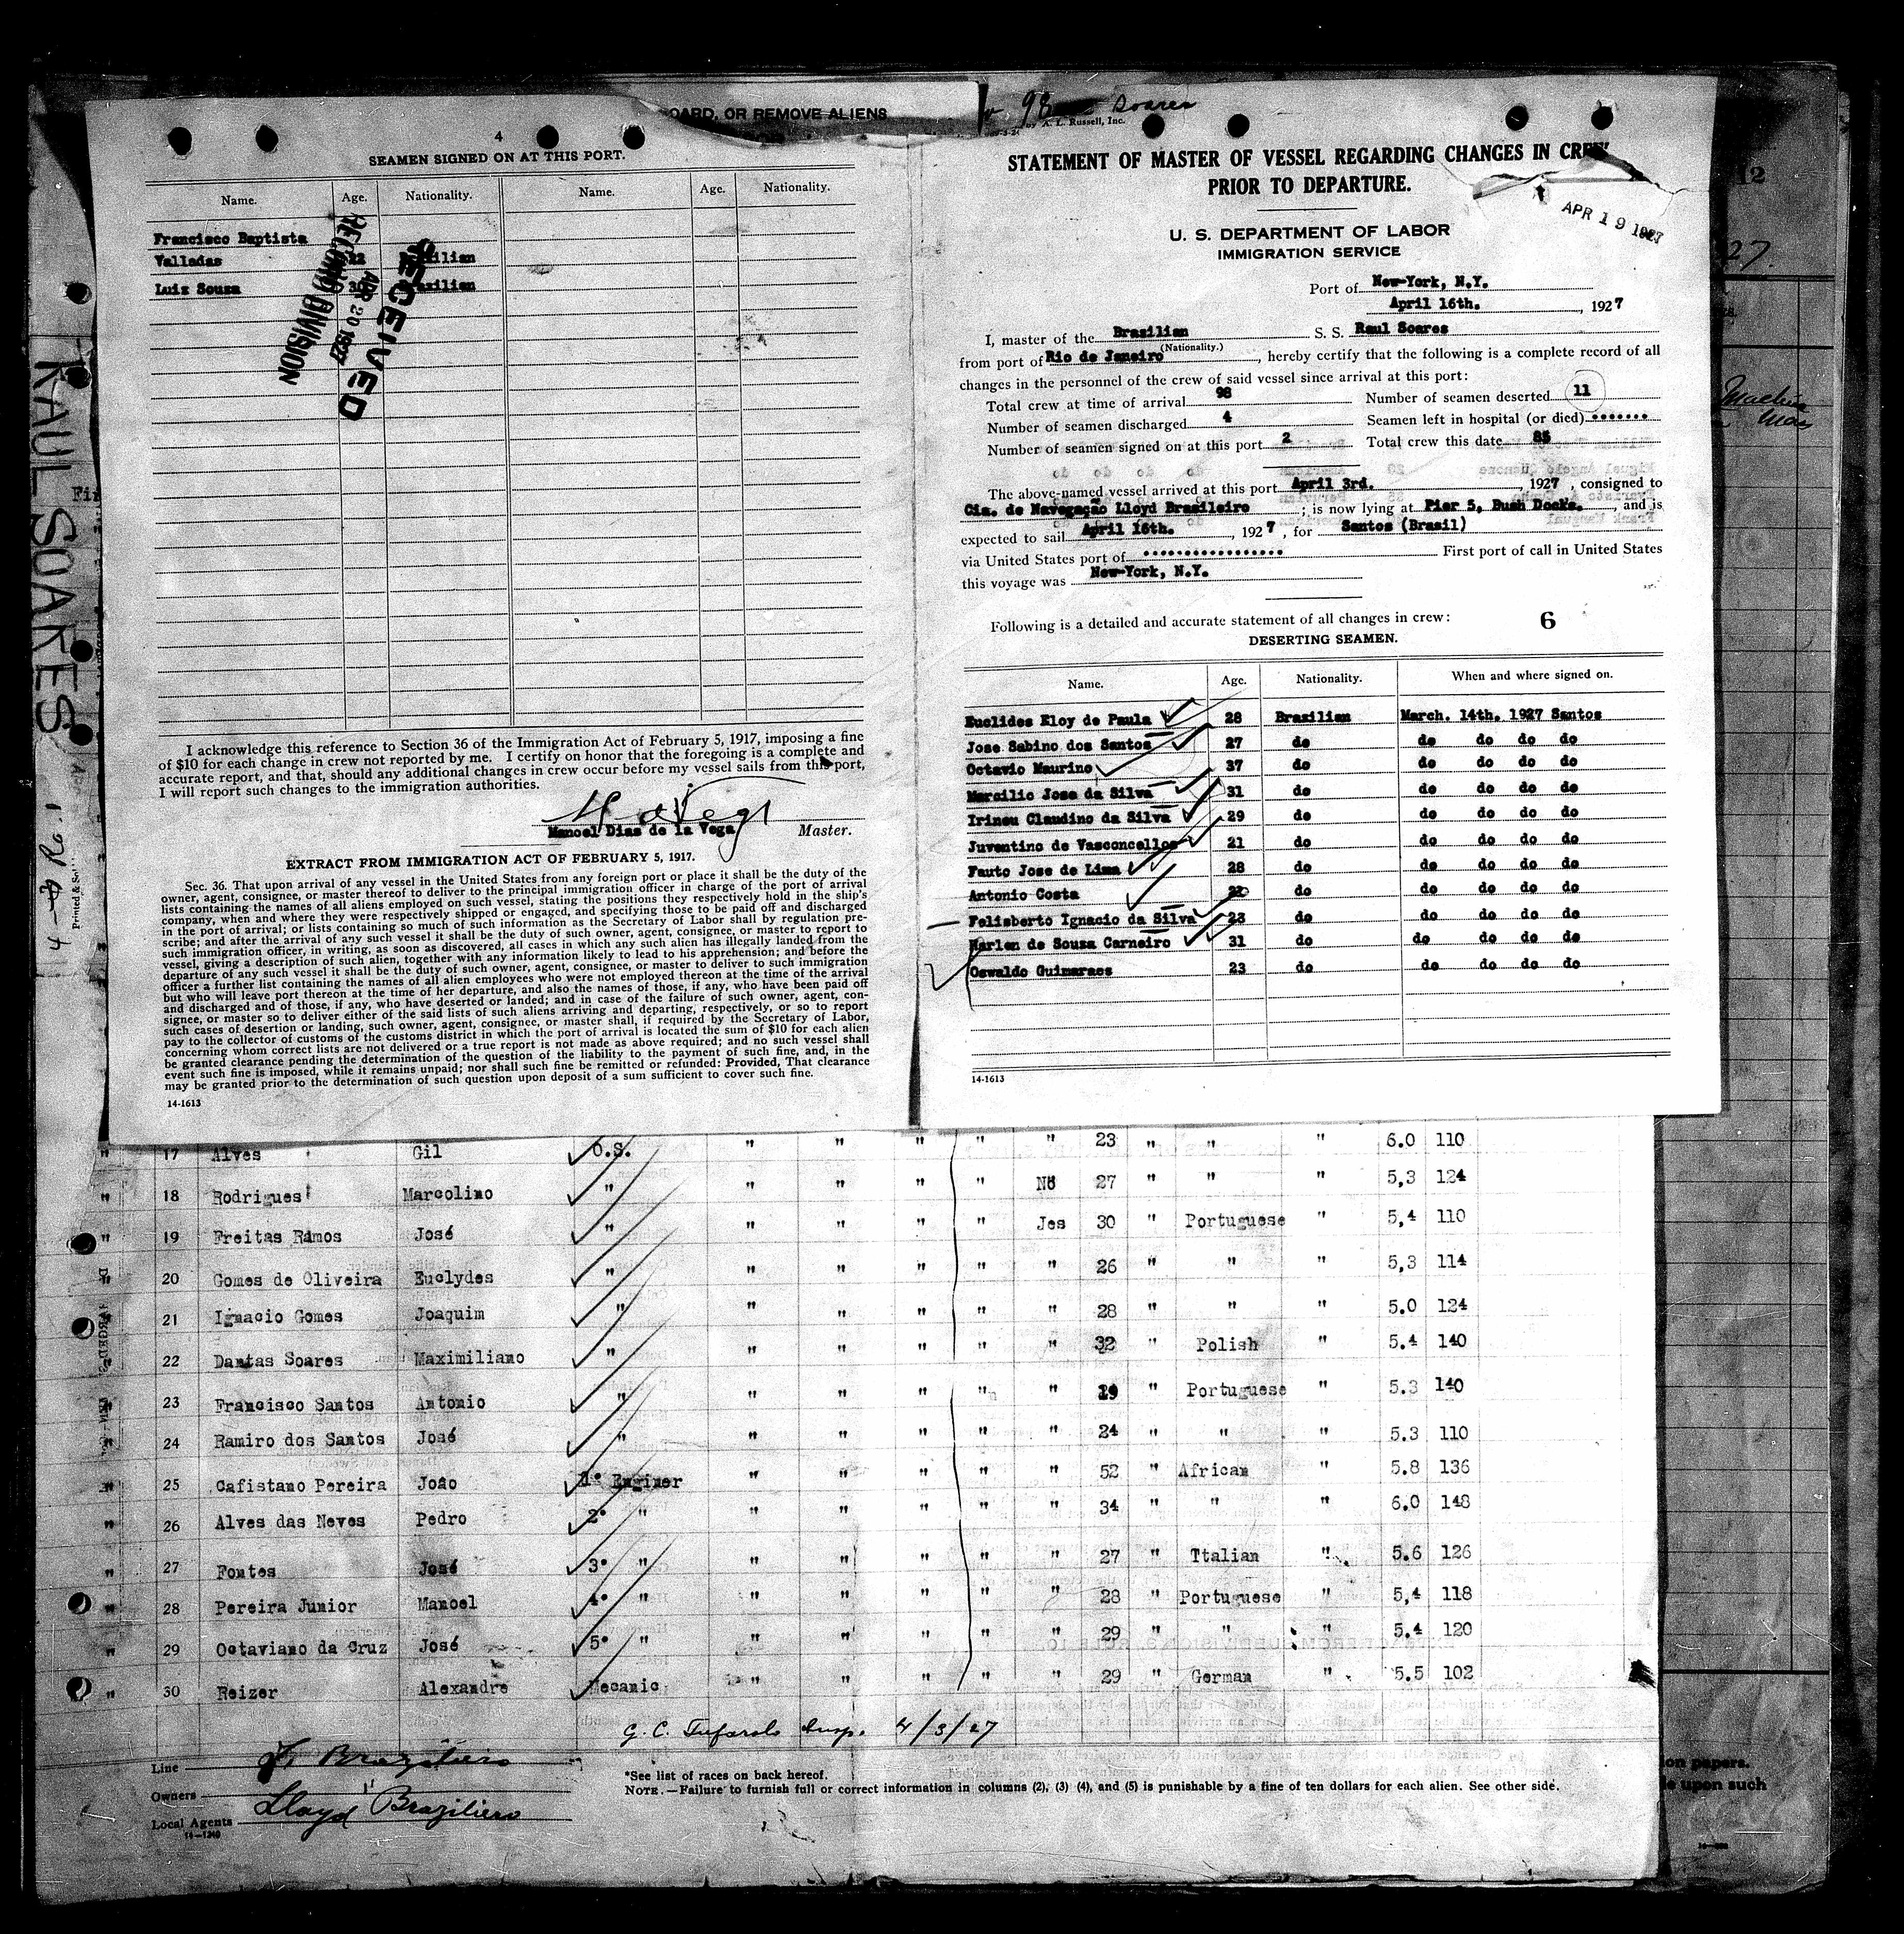 OARD, OR REMOVE ALIENS
4
SEAMEN SIGNED ON AT THIS PORT.
Name. Age. Nationality. Name. Age. Nationality.
Francisco Baptista
Valladas 22
Luiz Souza 30
RECEIVED
APR 20 1927
RECORD DIVISION
I acknowledge this reference to Section 36 of the Immigration Act of February 5, 1917, imposing a fine
of $10 for each change in crew not reported by me. I certify on honor that the foregoing is a complete and
accurate report, and that, should any additional changes in crew occur before my vessel sails from this port,
I will report such changes to the immigration authorities.
Manoel Dias de la Vega Master.
EXTRACT FROM IMMIGRATION ACT OF FEBRUARY 5, 1917.
Sec. 36. That upon arrival of any vessel in the United States from any foreign port or place it shall be the duty of the
owner, agent, consignee, or master thereof to deliver to the principal immigration officer in charge of the port of arrival
lists containing the names of all aliens employed on such vessel, stating the positions they respectively hold in the ship's
company, when and where they were respectively shipped or engaged, and specifying those to be paid off and discharged
in the port of arrival; or lists containing so much of such information as the Secretary of Labor shall by regulation pre-
scribe; and after the arrival of any such vessel it shall be the duty of such owner, agent, consignee, or master to report to
such immigration officer, in writing, as soon as discovered, all cases in which any such alien has illegally landed from the
vessel, giving a description of such alien, together with any information likely to lead to his apprehension; and before the
departure of any such vessel it shall be the duty of such owner, agent, consignee, or master to deliver to such immigration
officer a further list containing the names of all alien employees who were not employed thereon at the time of the arrival
but who will leave port thereon at the time of her departure, and also the names of those, if any, who have been paid off
and discharged and of those, if any, who have deserted or landed; and in case of the failure of such owner, agent, con-
signee, or master so to deliver either of the said lists of such aliens arriving and departing, respectively, or so to report
such cases of desertion or landing, such owner, agent, consignee, or master shall, if required by the Secretary of Labor,
pay to the collector of customs of the customs district in which the port of arrival is located the sum of $10 for each alien
concerning whom correct lists are not delivered or a true report is not made as above required; and no such vessel shall
be granted clearance pending the determination of the question of the liability to the payment of such fine, and, in the
event such fine is imposed, while it remains unpaid; nor shall such fine be remitted or refunded: Provided, That clearance
may be granted prior to the determination of such question upon deposit of a sum sufficient to cover such fine.
14-1613
98 Soares
by A. L. Russell, Inc.
STATEMENT OF MASTER OF VESSEL REGARDING CHANGES IN CREW
PRIOR TO DEPARTURE.
APR 19 1927
U. S. DEPARTMENT OF LABOR
IMMIGRATION SERVICE
Port of New-York, N.Y.
April 16th. , 1927
I, master of the Brasilian S. S. Raul Soares
(Nationality.)
from port of Rio de Janeiro , hereby certify that the following is a complete record of all
changes in the personnel of the crew of said vessel since arrival at this port:
Total crew at time of arrival 98 Number of seamen deserted 11
Number of seamen discharged 4 Seamen left in hospital (or died)
Number of seamen signed on at this port 2 Total crew this date 85
The above-named vessel arrived at this port April 3rd. , 1927 , consigned to
Cia. de Navegação Lloyd Brasileiro ; is now lying at Pier 5, Bush Docks. , and is
expected to sail April 16th. , 1927 , for Santos (Brasil)
via United States port of First port of call in United States
this voyage was New-York, N.Y.
Following is a detailed and accurate statement of all changes in crew: 6
DESERTING SEAMEN.
Name. Age. Nationality. When and where signed on.
Euclides Eloy de Paula 28 Brasilian March. 14th. 1927 Santos
Jose Sabino dos Santos 27 do do do do do
Octavio Maurino 37 do do do do do
Marcilio Jose da Silva 31 do do do do do
Irineu Claudino da Silva 29 do do do do do
Juventino de Vasconcellos 21 do do do do do
Fauto Jose de Lima 28 do do do do do
Antonio Costa do do do do do
Felisberto Ignacio da Silva 23 do do do do do
Harlen de Souza Carneiro 31 do do do do do
Oswaldo Guimaraes 23 do do do do do
14-1613
RAUL SOARES
12
27.
17 Alves Gil O.S. " " " " " 23 " " " 6.0 110
" 18 Rodrigues Marcolino " " " " " No 27 " " " 5,3 124
" 19 Freitas Ramos José " " " " " Jes 30 " Portuguese " 5,4 110
" 20 Gomes de Oliveira Euclydes " " " " " " 26 " " " 5,3 114
21 Ignacio Gomes Joaquim " " " " " " 28 " " " 5.0 124
22 Dantas Soares Maximiliano " " " " " " 32 " Polish " 5.4 140
23 Francisco Santos Antonio " " " " " " 19 " Portuguese " 5.3 140
" 24 Ramiro dos Santos José " " " " " " 24 " " " 5.3 110
" 25 Cafistano Pereira João 1º Enginer " " " " " 52 " African " 5.8 136
" 26 Alves das Neves Pedro 2º " " " " " " 34 " " " 6.0 148
" 27 Fontes José 3º " " " " " " 27 " Ttalian " 5.6 126
" 28 Pereira Junior Manoel 4º " " " " " " 28 " Portuguese " 5,4 118
" 29 Octaviano da Cruz José 5º " " " " " " 29 " " " 5.4 120
" 30 Reizer Alexandre Mecanic " " " " " 29 " German " 5.5 102
G. C. Tufarolo Insp. 4/3/27
Line Braziliero
Owners "
Local Agents Lloyd Braziliero
14-1240
*See list of races on back hereof.
NOTE.—Failure to furnish full or correct information in columns (2), (3) (4), and (5) is punishable by a fine of ten dollars for each alien. See other side.
on papers.
e upon such